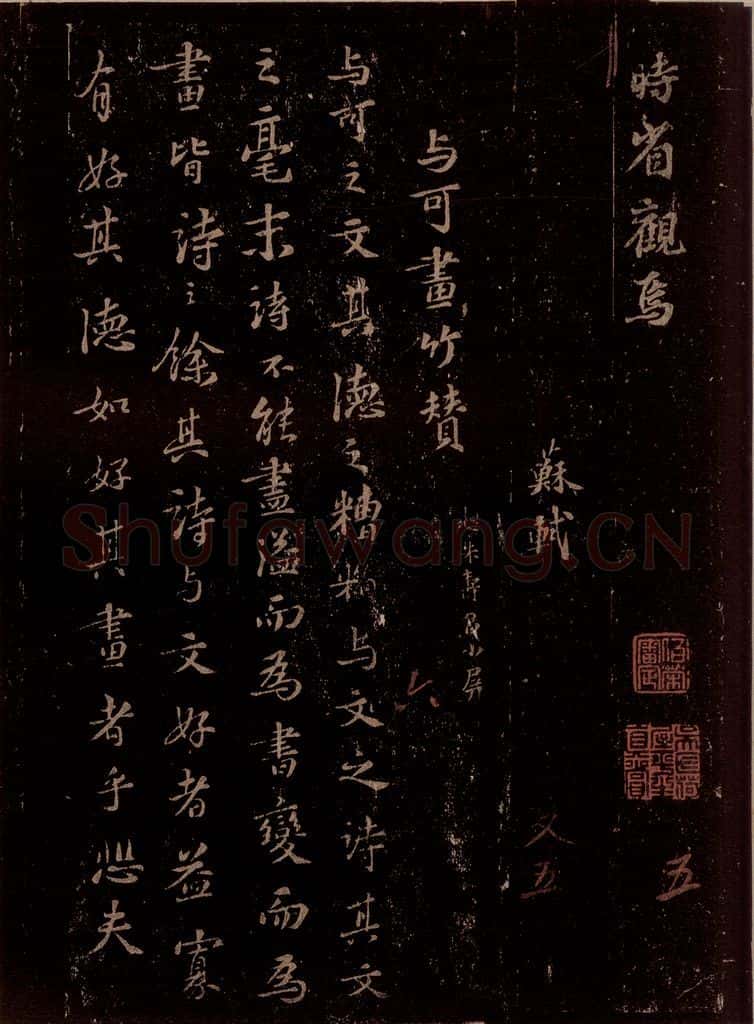 時省觀焉
五
蘇軾
又五
与可畫竹賛
六
与可之文其德之糟粕与文之詩其文
之毫末詩不能盡溢而為書變而為
畫皆詩之餘其詩与文好者益寡
有好其德如好其畫者乎悲夫
Shufawang.CN